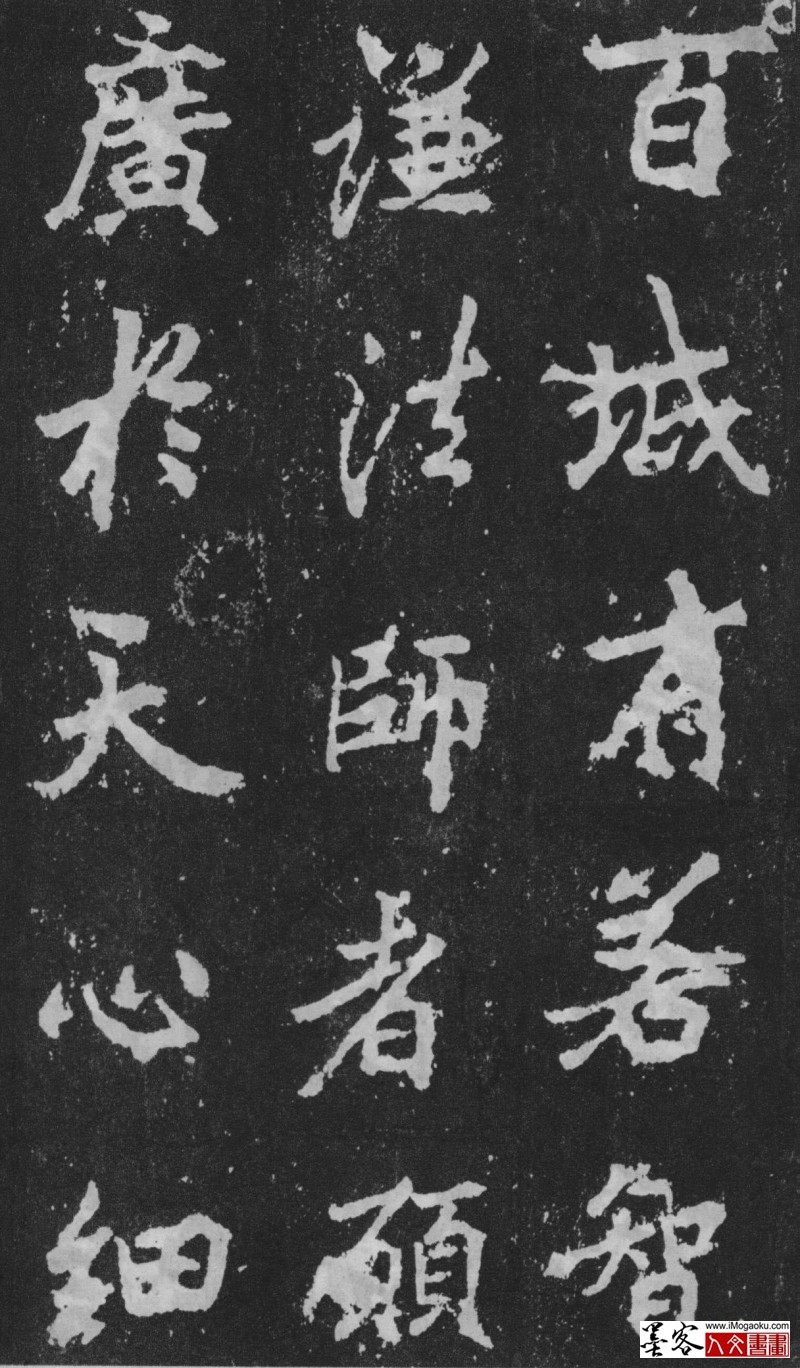 百城有若智
謙法師者願
廣於天心細
www.iMogaoku.com
墨客人文書畫